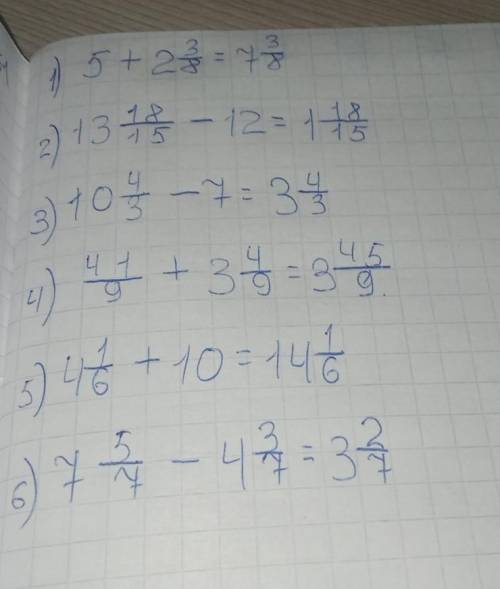 1) 5 + 2 3/8 = 7 3/8
2) 13 18/15 - 12 = 1 18/15
3) 10 4/3 - 7 = 3 4/3
4) 41/9 + 3 4/9 = 3 45/9
5) 4 1/6 + 10 = 14 1/6
6) 7 5/7 - 4 3/7 = 3 2/7